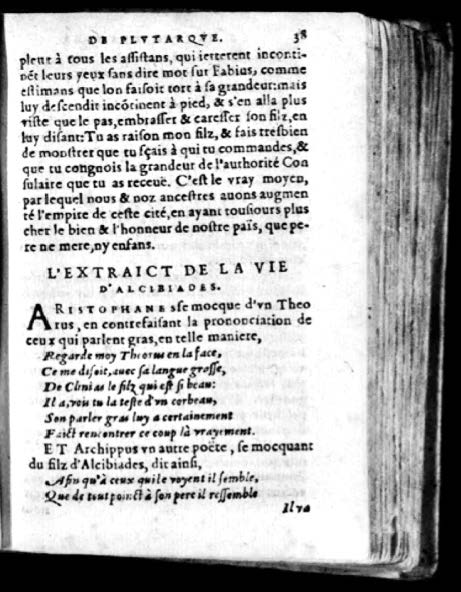 DE PLVTARQVE. 38
pleut à tous les assistans, qui ietterent inconti-
nẽt leurs yeux sans dire mot sur Fabius, comme
estimans que lon faisoit tort à sa grandeur: mais
luy descendit incõtinent à pied, & s'en alla plus
viste que le pas, embrasser & caresser son filz, en
luy disant: Tu as raison mon filz, & fais tresbien
de monstrer que tu sçais à qui tu commandes, &
que tu congnois la grandeur de l'authorité Con
sulaire que tu as receuë. C'est le vray moyen,
par lequel nous & noz ancestres auons augmen
té l'empire de ceste cité, en ayant tousiours plus
cher le bien & l'honneur de nostre païs, que pe-
re ne mere, ny enfans.
L'EXTRAICT DE LA VIE
D'ALCIBIADES.
ARISTOPHANES se mocque d'vn Theo
rus, en contrefaisant la prononciation de
ceux qui parlent gras, en telle maniere,
Regarde moy Theorus en la face,
Ce me disoit, auec sa langue grasse,
De Clinias le filz qui est si beau:
Il a, vois tu la teste d'vn corbeau,
Son parler gras luy a certainement
Faict rencontrer ce coup là vrayement.
ET Archippus vn autre poëte, se mocquant
du filz d'Alcibiades, dit ainsi,
Afin qu'à ceux qui le voyent il semble,
Que de tout poinct à son pere il ressemble
Il va